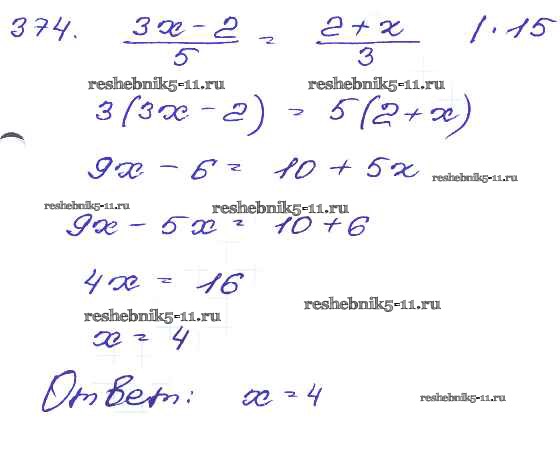 374. (3x - 2)/5 = (2 + x)/3 | · 15
reshebnik5-11.ru reshebnik5-11.ru
3(3x - 2) = 5(2 + x)
9x - 6 = 10 + 5x reshebnik5-11.ru
reshebnik5-11.ru reshebnik5-11.ru
9x - 5x = 10 + 6
4x = 16
reshebnik5-11.ru
reshebnik5-11.ru
x = 4
Ответ: x = 4 reshebnik5-11.ru